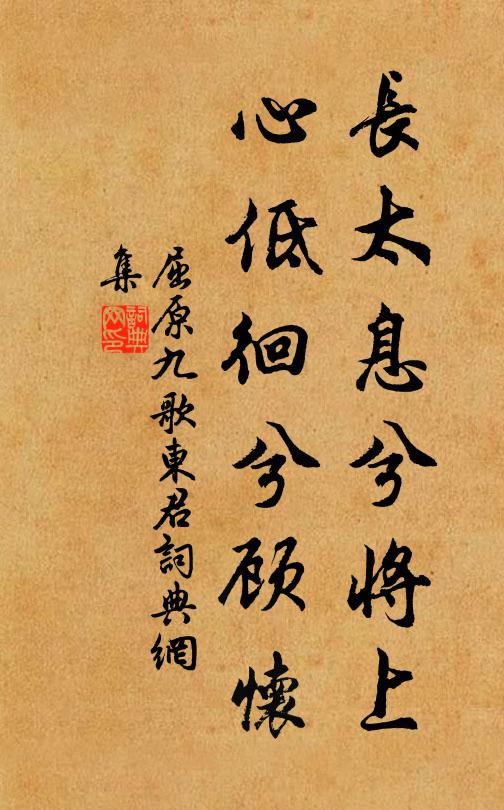 長太息兮將上
心低徊兮顧懷
屈原九歌東君詞典網
集
詞典
网印